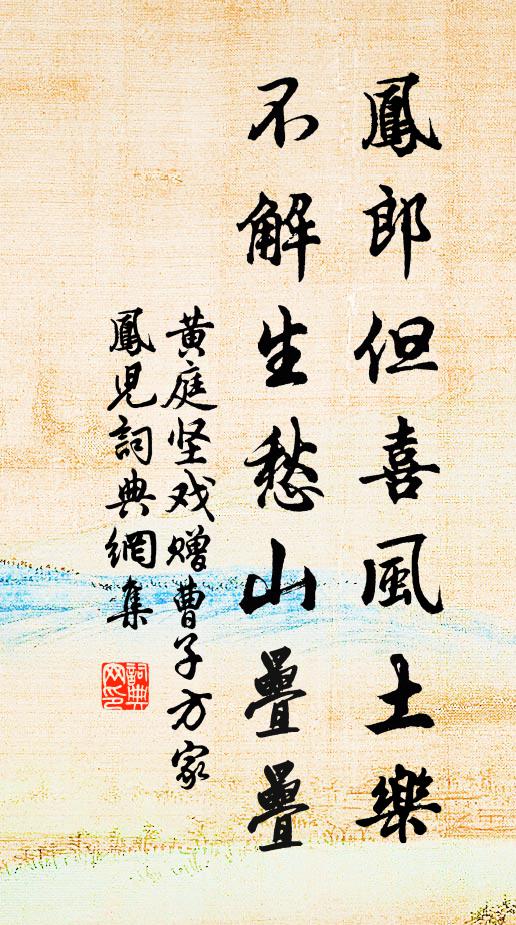 鳳郎但喜風土樂
不解生愁山疊疊
黄庭坚戏赠曹子方家
鳳児詞典網集
詞典網印